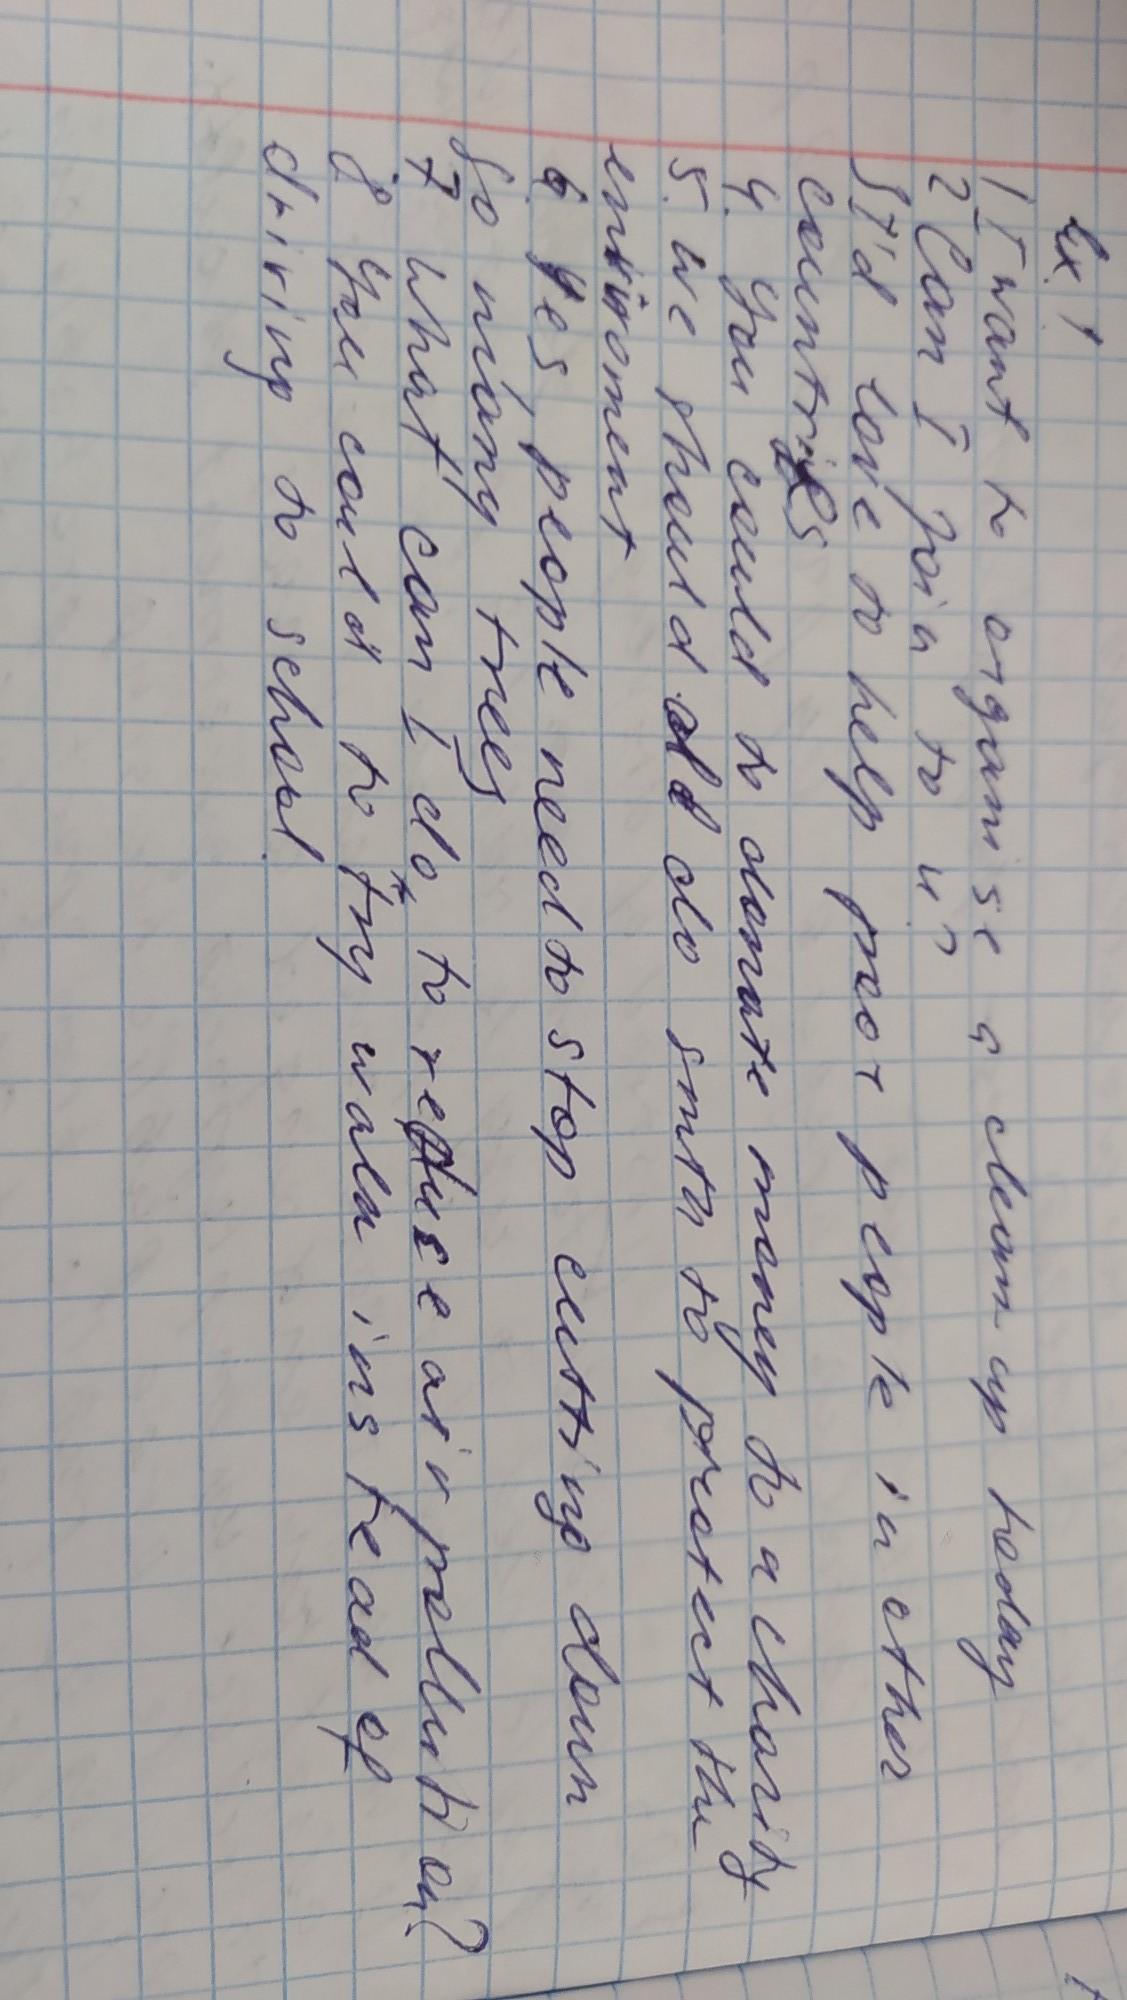 Ex 1
1 I want to organise a clean-up today
2 Can I join to u?
3 I'd love to help poor people in other
countries
4. You could to donate money to a charity
5. we should do smth to protect the
enviroment
6. Yes, people need to stop cutting down
so many trees
7 What can I do to reduse air pollution?
8. You could to try walk instead of
driving to school.